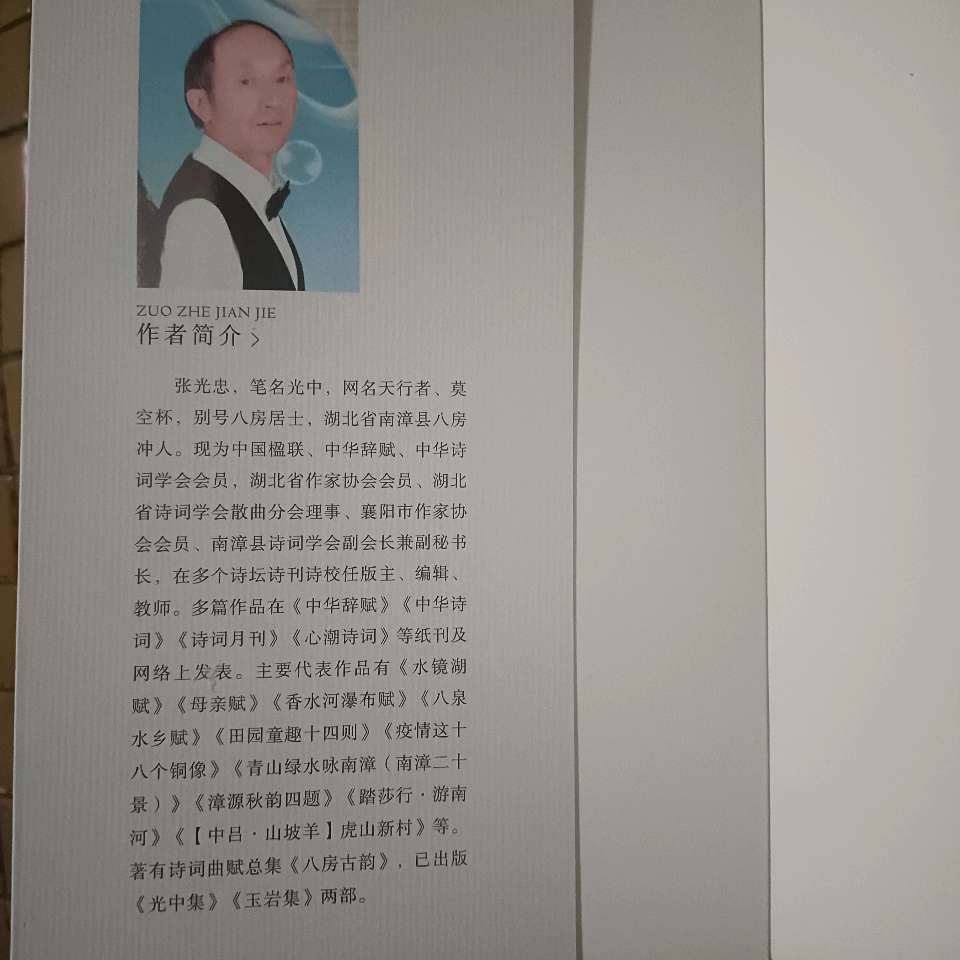 ZUO ZHE JIAN JIE
作者简介
张光忠，笔名光中，网名天行者、莫
空杯，别号八房居士，湖北省南漳县八房
冲人。现为中国楹联、中华辞赋、中华诗
词学会会员，湖北省作家协会会员、湖北
省诗词学会散曲分会理事、襄阳市作家协
会会员、南漳县诗词学会副会长兼副秘书
长，在多个诗坛诗刊诗校任版主、编辑、
教师。多篇作品在《中华辞赋》《中华诗
词》《诗词月刊》《心潮诗词》等纸刊及
网络上发表。主要代表作品有《水镜湖
赋》《母亲赋》《香水河瀑布赋》《八泉
水乡赋》《田园童趣十四则》《疫情这十
八个铜像》《青山绿水咏南漳（南漳二十
景）》《漳源秋韵四题》《踏莎行·游南
河》《【中吕·山坡羊】虎山新村》等。
著有诗词曲赋总集《八房古韵》，已出版
《光中集》《玉岩集》两部。